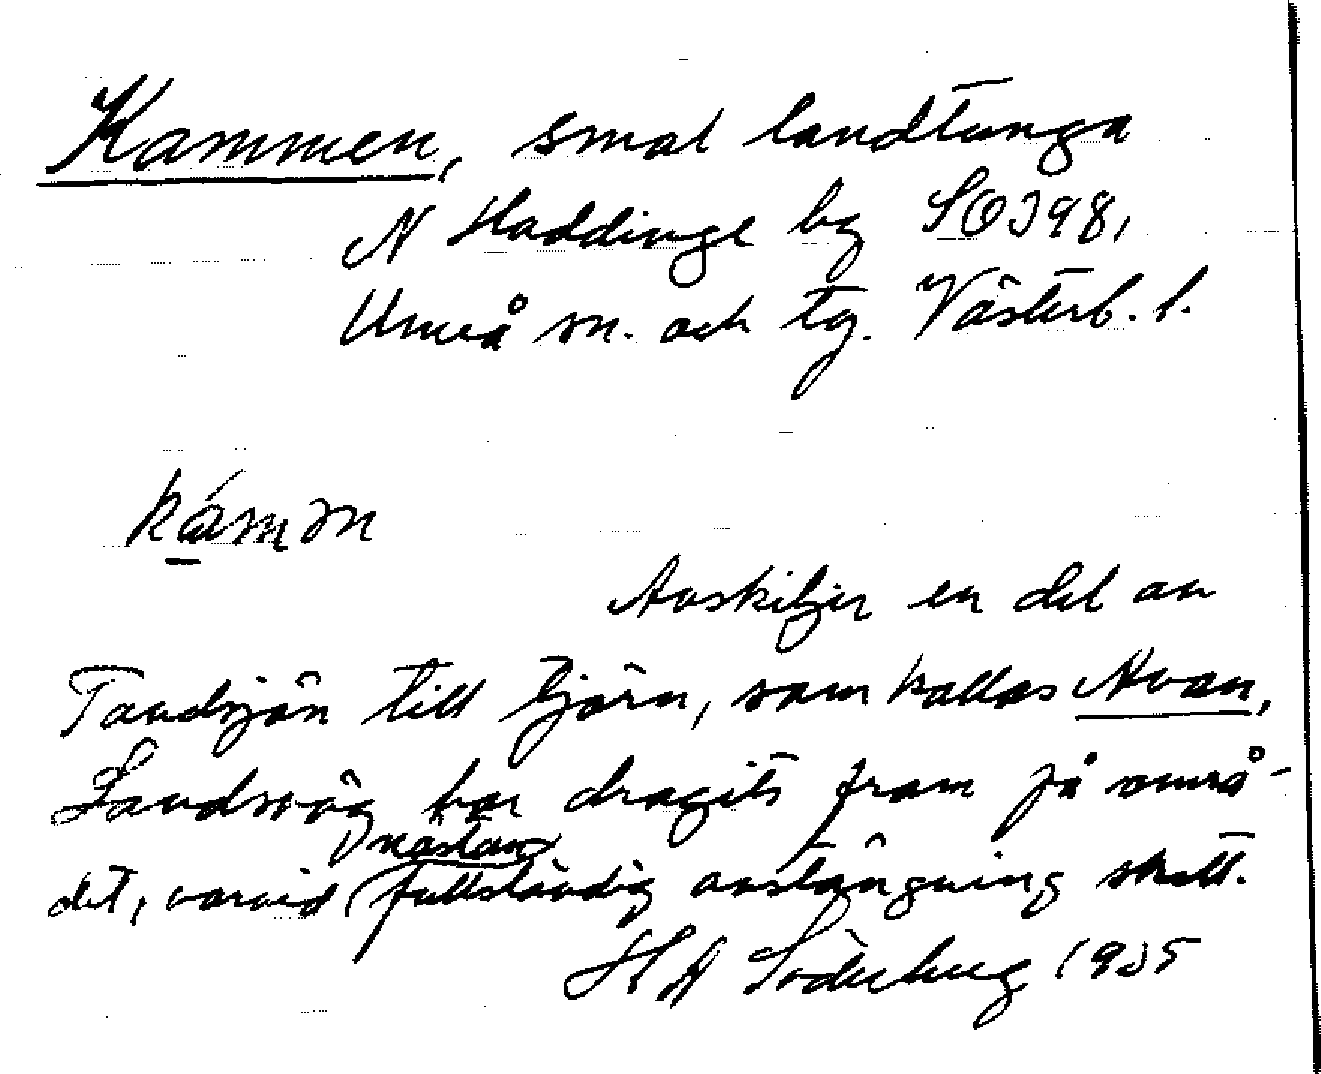 Kammen, smal landtunga
N Haddinge by SO398,
Umeå sn. och tg. Västerb. l.
kámən
Avskiljer en del av
Tavdsjön till tjärn, som kallas Avan,
Landsväg har dragits fram på områ-
det, varvid nästan fullständig avstängning skett.
H A Söderberg 1935